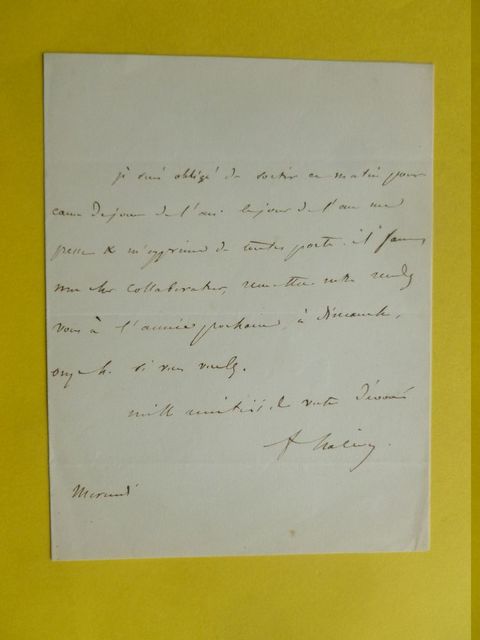 je suis obligé de sortir ce matin pour
cause de jour de l'an. le jour de l'an me
presse & m'opprime de toutes parts. il faut
mon cher collaborateur, remettre notre rendez
vous à l'année prochaine, à dimanche,
onze h. si vous voulez.
mille amitiés de votre dévoué
f halévy.
Mercredi